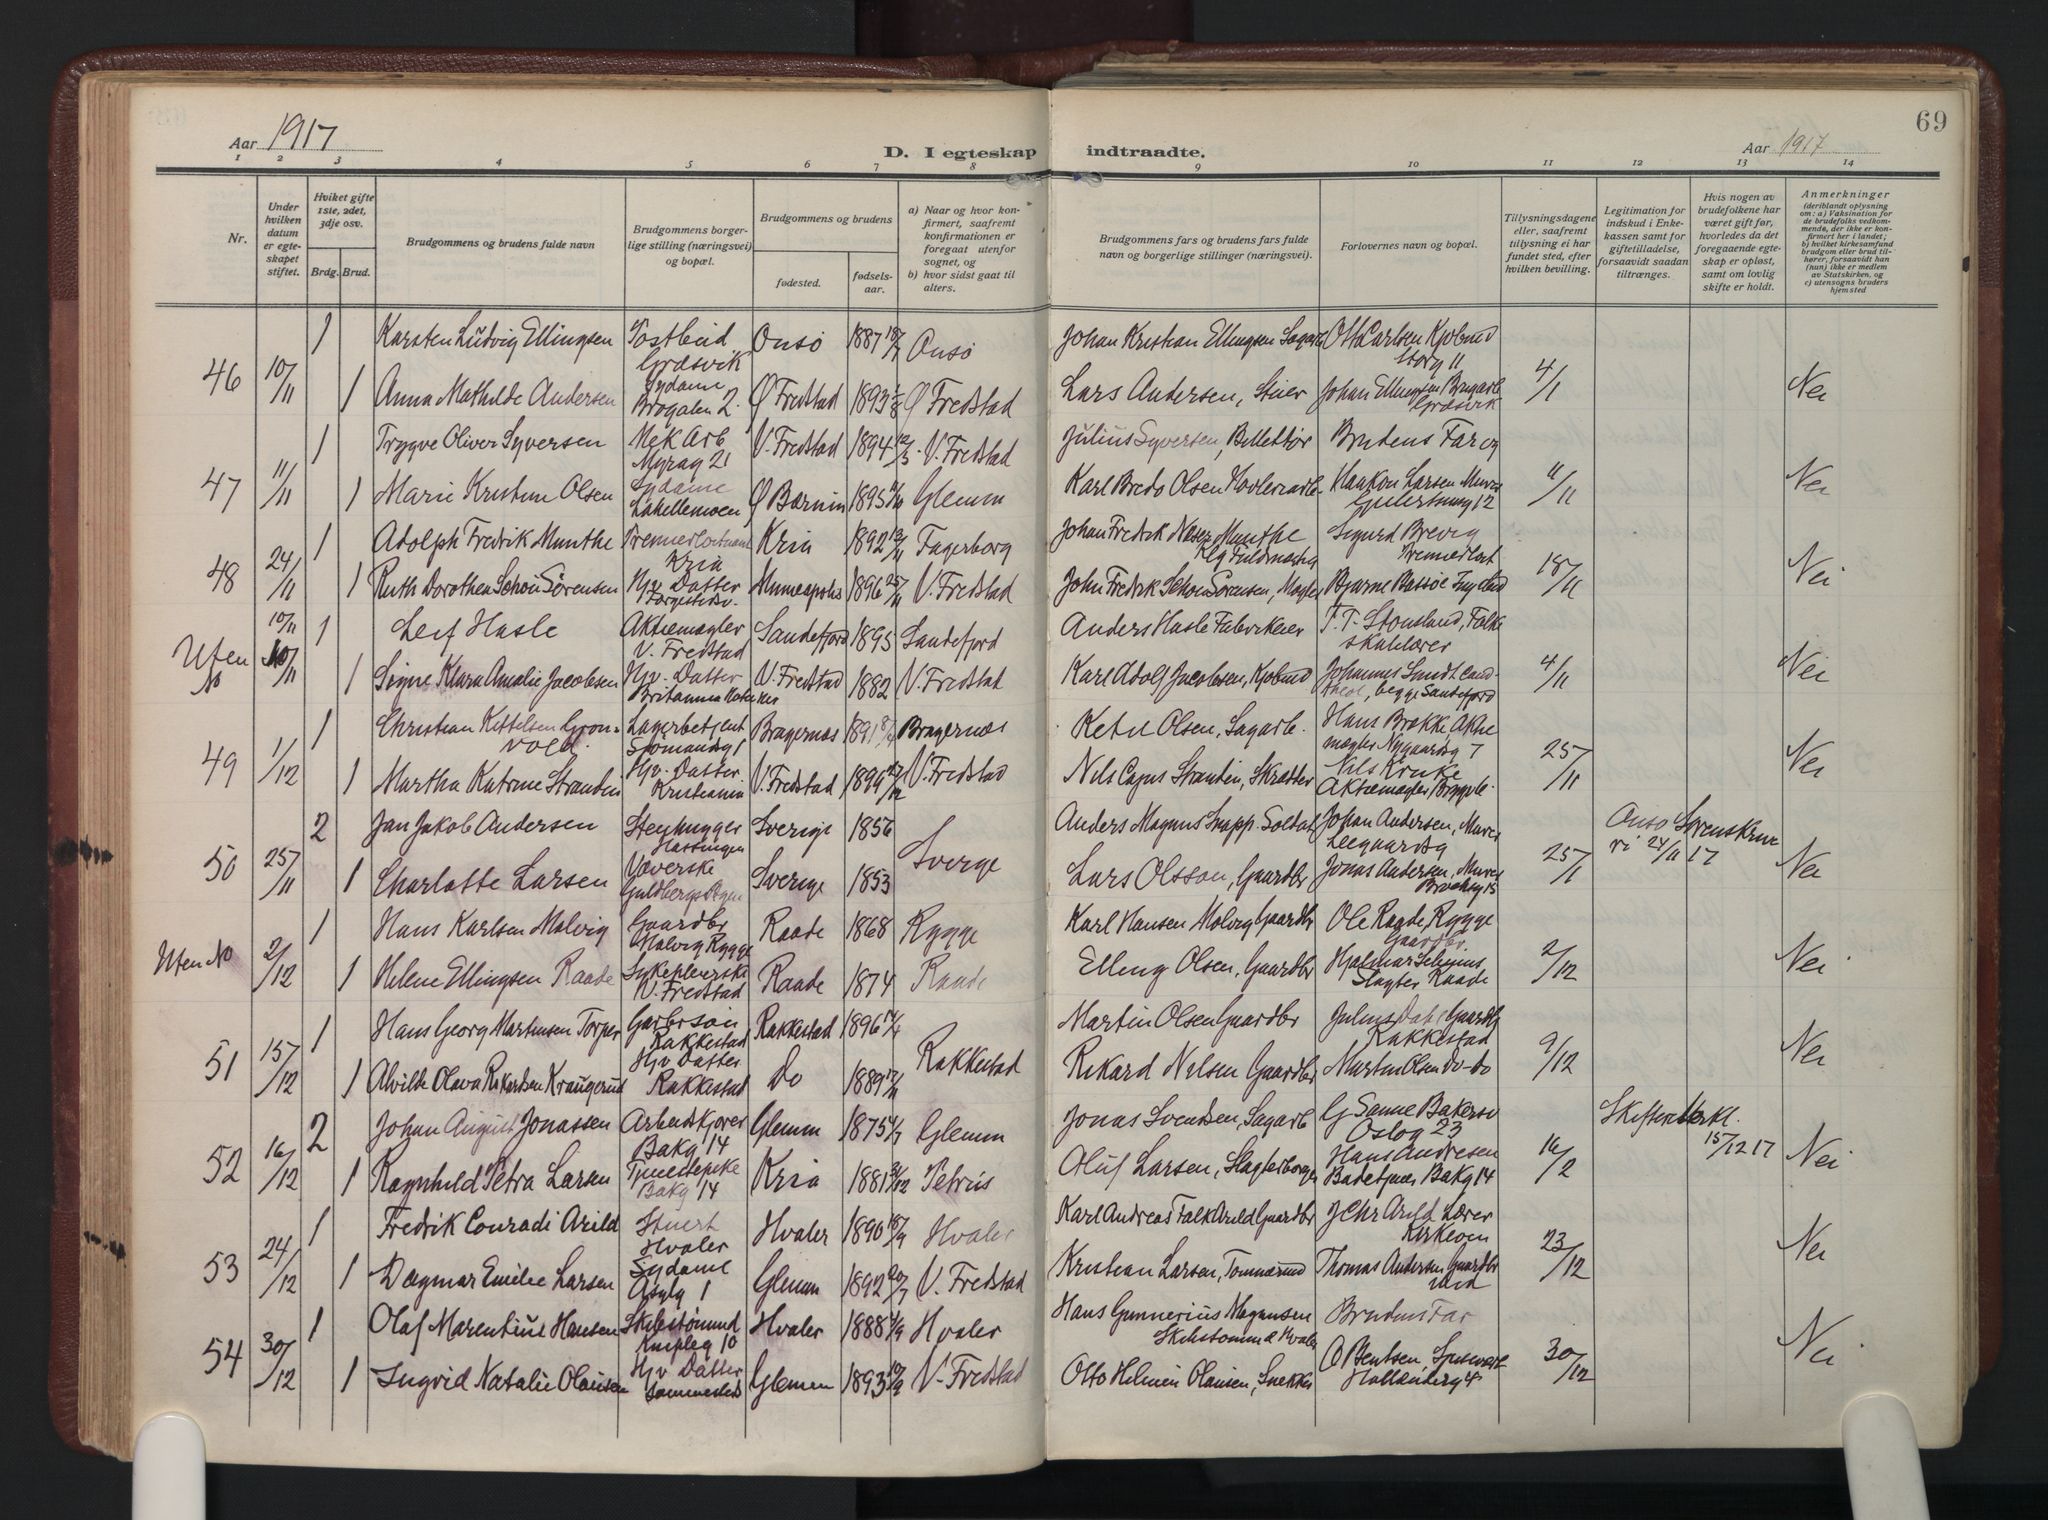 Aar 1917
D. I egteskap indtraadte.
Aar 1917
69
1 2 3 4 5 6 7 8 9 10 11 12 13 14
Nr.
Under hvilken datum er egteskapet stiftet.
Hviket gifte 1ste, 2det, 3dje osv.
Brdg. Brud.
Brudgommens og brudens fulde navn
Brudgommens borgerlige stilling (næringsvei) og bopæl.
Brudgommens og brudens
fødested.
fødselsaar.
a) Naar og hvor konfirmert, saafremt konfirmationen er foregaat utenfor sognet, og
b) hvor sidst gaat til alters.
Brudgommens fars og brudens fars fulde navn og borgerlige stillinger (næringsvei).
Forlovernes navn og bopæl.
Tillysningsdagene eller, saafremt tillysning ei har fundet sted, efter hvilken bevilling.
Legitimation for indskud i Enkekassen samt for giftetilladelse, forsaavidt saadan tiltrænges.
Hvis nogen av brudefolkene har været gift før, hvorledes da det foregaaende egteskap er opløst, samt om lovlig skifte er holdt.
Anmerkninger
(deriblandt oplysning om: a) Vaksination for de brudefolks vedkommende, der ikke er konfirmert her i landet; b) hvilket kirkesamfund brudgom eller brud tilhører, forsaavidt han (hun) ikke er medlem av Statskirken, og c) utensogns bruders hjemsted
46 10/11 1 Karsten Ludvig Ellingsen Postbud Græsvik Onsø 1887 18/7 Onsø Johan Kristian Ellingsen Sagarb Otto Carlsen Kjøbmd Storg 11
1 Anna Mathilde Andersen Sydame Brogaten 2 Ø Fredstad 1893 Ø Fredstad Lars Andersen, Stuer Johan Ellingsen Brugarb Græsvik 4/1 Nei
47 11/11 1 Trygve Oliver Syversen Mek Arb Myrag 21 V. Fredstad 1894 12/5 V. Fredstad Julius Syversen, Billettør Brudens Far og
1 Marie Kristine Olsen Sydame Labellemoen Ø 1895 Glemm Karl Bredo Olsen Haakon Larsen Murer 11/11 Nei
48 24/11 1 Adolph Fredrik Munthe Premierløitnant Kria Kria 1892 Fagerborg Johan Fredrik Næser Munthe Sigurd Brevig Premierløit
1 Ruth Dorothea Schou Sørensen Hjv. Datter Minneapolis 1896 25/11 V. Fredstad John Fredrik Schou Sørensen, Mægler Bjarne 18/11 Nei
Uten No 10/11 1 Leif Hasle Aktiemægler V. Fredstad Sandefjord 1895 Sandefjord Anders Hasle Fabrikeier F. T. Stousland, Folkeskolelærer
1 Signe Klara Amalie Jacobsen Hjv. Datter Britannia V. Fredstad 1882 V. Fredstad Karl Adolf Jacobsen, Kjøbmd Johannes Sundt cand theol, begge Sandefjord 4/11 Nei
49 1/12 1 Christian Kittelsen Grønvold Lagerbetjent Bragernæs 1891 Bragernæs Ketil Olsen, Sagarb. Hans Brække Aktiemægler Nygaardsg 7
1 Martha Katrine Stranden Hjv. Datter Kristiania V. Fredstad 27/12 V. Fredstad Nils Cajus Stranden, Skrædder Nils Kruke Aktiemægler 25/11 Nei
50 25/11 2 Jan Jakob Andersen Stenhugger Hassingen Sverige 1856 Sverge Anders Magnus Snapp. Soldat Johan Andersen, Murer Leegaardsg Onsø Sorenskriveri 24/11 17
1 Charlotte Larsen Væverske Sverige 1853 Lars Olsson, Gaardbr Jonas Andersen, Murer 25/1 Nei
Uten No 2/12 1 Hans Karlsen Molvig Gaardbr Molvig Rygge Raade 1868 Rygge Karl Hansen Molvig Gaardbr Ole Raade, Rygge Gaardbr.
1 Helene Ellingsen Raade Sykepleierske V. Fredstad Raade 1874 Raade Elling Olsen, Gaardbr Hjalmar Slagter Raade 2/12 Nei
51 15/12 1 Hans Georg Martinsen Torper Garbrsøn Rakkestad Rakkestad 1896 Rakkestad Martin Olsen Gaardbr Julius Dahl Gaardbr Rakkestad
1 Alvilde Olava Rikardsen Kraugerud Hjv Datter Rakkestad Do 1889 Rikard Nilsen Gaardbr Martin Olsen do-do 9/12 Nei
52 16/12 2 Johan August Jonassen Arbeidskjører Bakg 14 Glemm 1875 Glemm Jonas Svendsen, Sagarb G Sanne Bakersv Oslog 23 Skifteretserkl. 15/12 17
1 Ragnhild Petra Larsen Tjenestepike Bakg 14 Kria 1881 Petrus Oluf Larsen, Slagterborger Hans Andresen Badetjener Bakg 14 16/2 Nei
53 24/12 1 Fredrik Conradi Arild Stuert Hvaler Hvaler 1890 Hvaler Karl Andreas Falk Arild Gaardbr J Chr Arild Lærer Kirkeøen
1 Dagmar Emilie Larsen Sydame Asylg 1 Glemm 1892 20/7 V. Fredstad Kristian Larsen, Tømmermd Thomas Andersen Gaardbr 23/12 Nei
54 30/12 1 Olaf Marentius Hansen Skibstømmmd Kirpleg 10 Hvaler 1888 Hvaler Hans Gunnerius Magnusen Skibstømmmd Hvaler Brudens Far
1 Ingrid Natalie Olausen Hjv Datter Sammesteds Glemm 1893 10/9 V. Fredstad Otto Helmin Olausen, Snekker O Bentsen, Spisevært Hollænderg 4 30/12 Nei